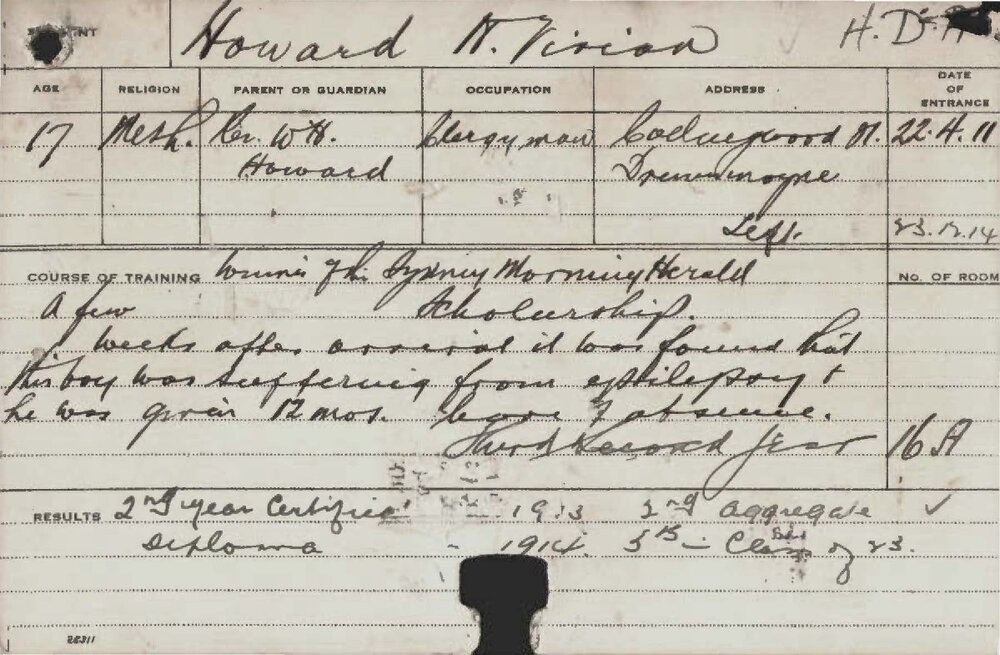 Howard N. Vivian H.D.A.
AGE RELIGION PARENT OR GUARDIAN OCCUPATION ADDRESS DATE OF ENTRANCE
17 Meth. Rev. W H. Clergyman Collingwood St. 22.4.11
Howard Drummoyne
Left. 23.12.14
COURSE OF TRAINING Winner of the Sydney Morning Herald No. OF ROOM
A few Scholarship.
weeks after arrival it was found that
this boy was suffering from epilepsy &
he was given 12 mos. leave of absence.
Second Year 16 A
RESULTS 2nd year Certificate 1913 2nd aggregate ✓
Diploma - 1914. 5th - Class of 23.
28311